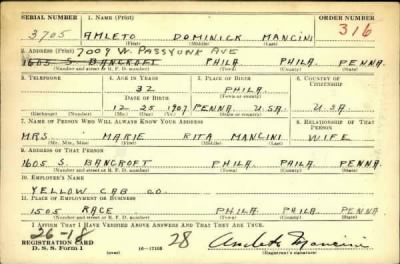 SERIAL NUMBER 1. NAME (Print) ORDER NUMBER
3705 AMLETO DOMINICK MANCINI 316
(First) (Middle) (Last)
2. ADDRESS (Print) 7009 W. PASSYUNK AVE
1605 S. BANCROFT PHILA. PHILA. PENNA.
(Number and street or R. F. D. number) (Town) (County) (State)
3. TELEPHONE 4. AGE IN YEARS 5. PLACE OF BIRTH 6. COUNTRY OF CITIZENSHIP
32 PHILA.
DATE OF BIRTH (Town or county)
12 25 1907 PENNA. U.S.A. U.S.A.
(Exchange) (Number) (Mo.) (Day) (Yr.) (State or country)
7. NAME OF PERSON WHO WILL ALWAYS KNOW YOUR ADDRESS 8. RELATIONSHIP OF THAT PERSON
MRS. MARIE RITA MANCINI WIFE
(Mr., Mrs., Miss) (First) (Middle) (Last)
9. ADDRESS OF THAT PERSON
1605 S. BANCROFT PHILA. PHILA. PENNA.
(Number and street or R. F. D. number) (Town) (County) (State)
10. EMPLOYER'S NAME
YELLOW CAB CO.
11. PLACE OF EMPLOYMENT OR BUSINESS
1505 RACE PHILA. PHILA. PENNA.
(Number and street or R. F. D. number) (Town) (County) (State)
I AFFIRM THAT I HAVE VERIFIED ABOVE ANSWERS AND THAT THEY ARE TRUE.
26-18
REGISTRATION CARD
D. S. S. Form 1 (over) 16-17105 28 Amleto Mancini
(Registrant's signature)